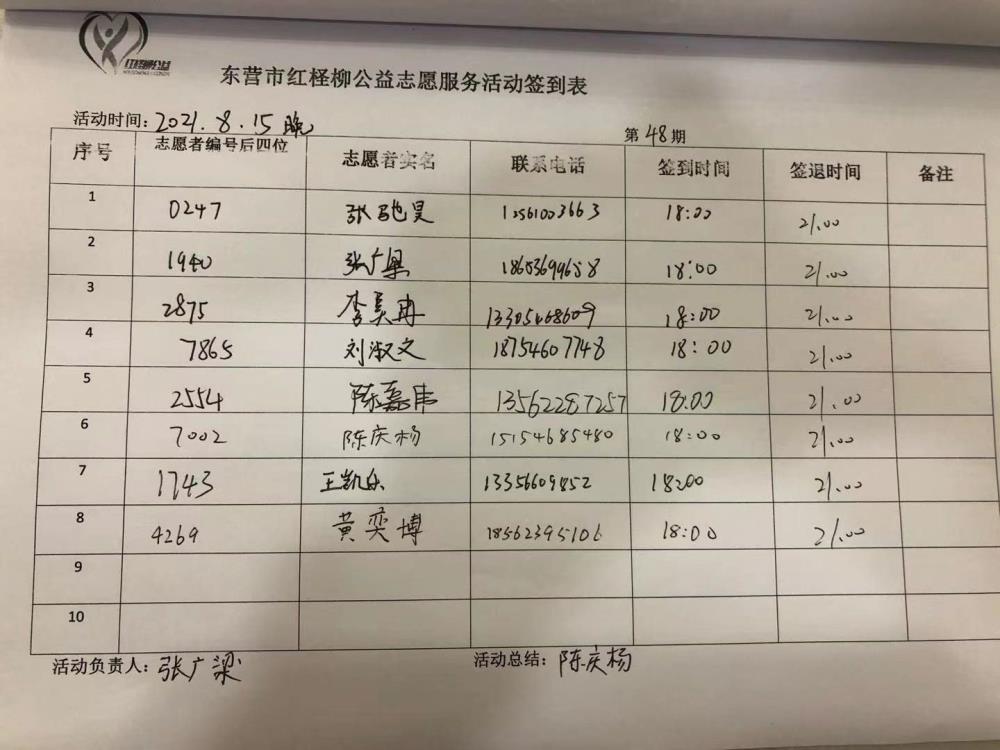 红柽柳公益
东营市红柽柳公益志愿服务活动签到表
活动时间：2021.8.15 晚 第48期
序号 志愿者编号后四位 志愿者实名 联系电话 签到时间 签退时间 备注
1 0247 张驰昊 18:00 21.00
2 1940 张广梁 18:00 21.00
3 2875 李美冉 13305468609 18:00 21.00
4 7865 刘淑文 18754607748 18:00 21.00
5 2554 陈嘉伟 13562287257 18:00 21.00
6 7002 陈庆杨 15154685480 18:00 21.00
7 1743 王凯乐 13356609852 18:00 21.00
8 4269 黄奕博 18562395106 18:00 21.00
9
10
活动负责人：张广梁 活动总结：陈庆杨